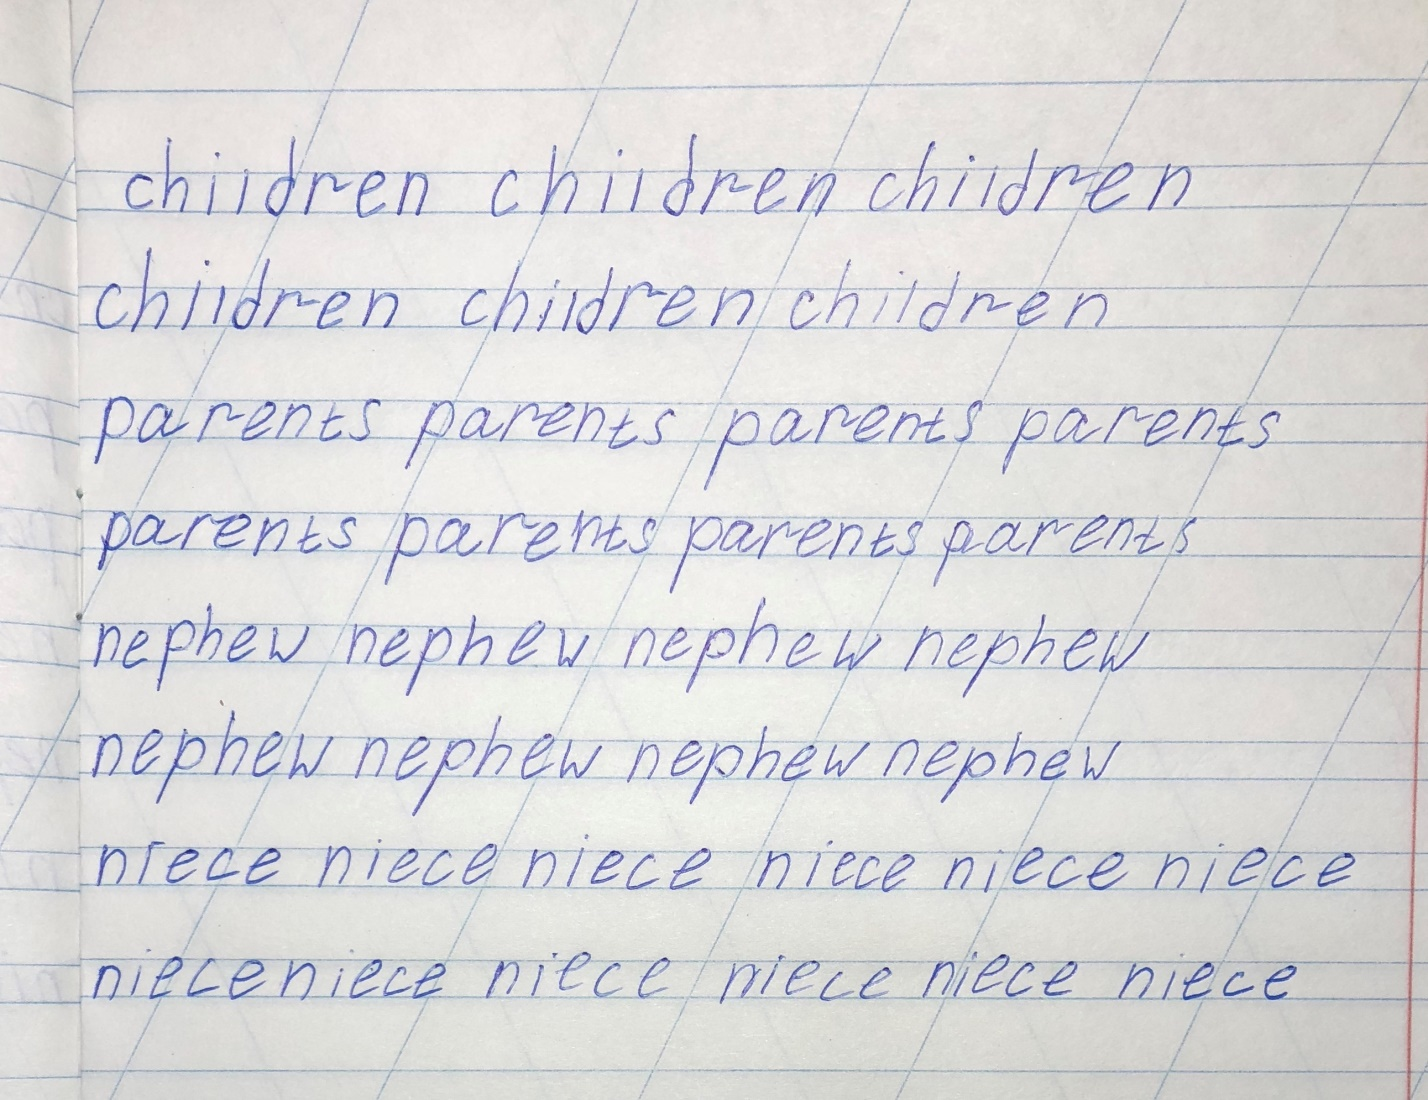 children children children
children children children
parents parents parents parents
parents parents parents parents
nephew nephew nephew nephew
nephew nephew nephew nephew
niece niece niece niece niece niece
niece niece niece niece niece niece